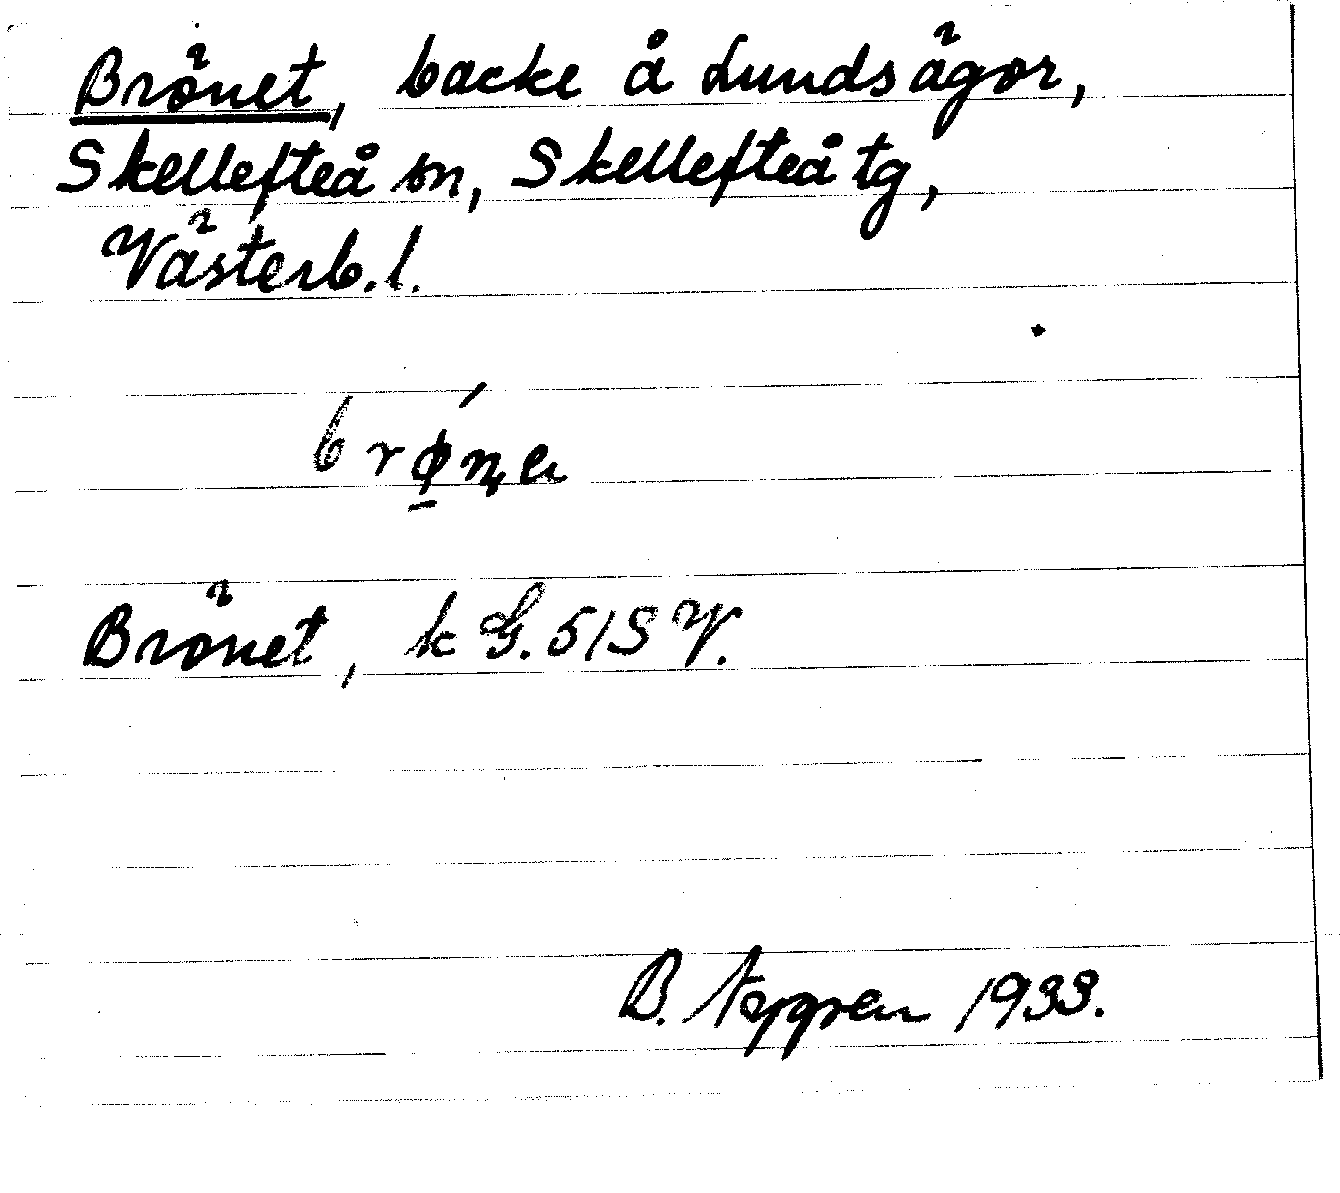 Brönet, backe å Lunds ägor,
Skellefteå sn, Skellefteå tg,
Västerb. l.
Brönet, k G. 5/S V.
B. Nygren 1933.